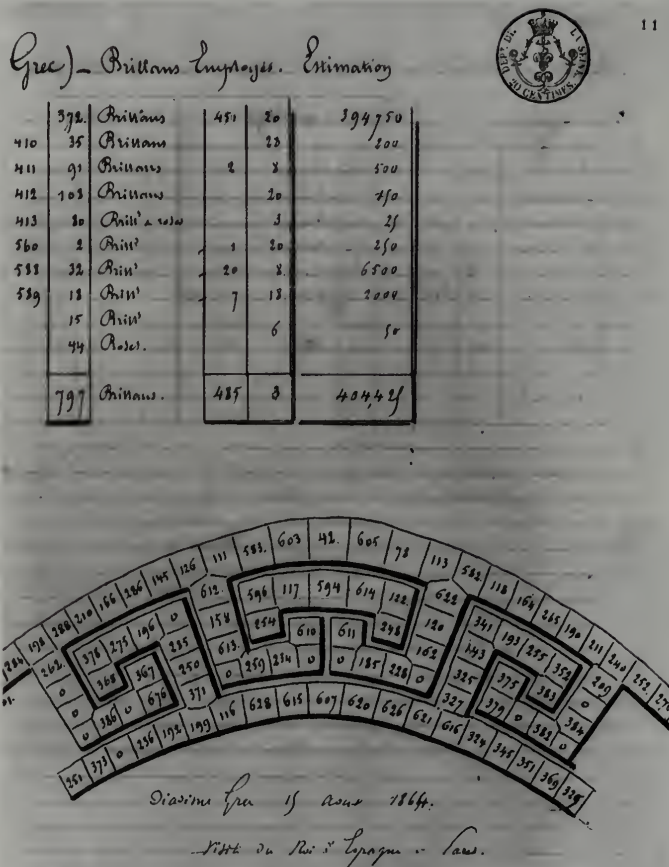 11
DEPT. DE LA SEINE. 20 CENTIMES.
Grec) _ Brillans Employés. Estimation
372. Brillans 451 20 394750
410 35 Brillans 28 200
411 91 Brillans 2 8 500
412 108 Brillans 20 150
413 80 Brills & roses 3 25
560 2 Brills 1 20 250
588 32 Brills 20 8. 6500
589 18 Brills 7 18. 2000
15 Brills 6 50
44 Roses.
797 Brillans. 485 3 404,425
284 198 288 210 166 286 145 126 111 583. 603 42. 605 78 113 582. 118 164 265 190 211 240 252
262. 378 275 196 0 612. 596 117 594 614 122. 622 341 193 255 352 209
0 368 367 235 158 254 610 611 248 120 343 375 383 384
0 386 0 676 250 613. 0 259 234 0 0 185 228 0 162 325 379 0 382 0 0
0 371 327
251 373 0 236 192 199 116 628 615 607 620 626 621 616 324 345 351 369 329
Diadème Grec 15 aout 1864.
Visite du Roi d'Espagne à Paris.